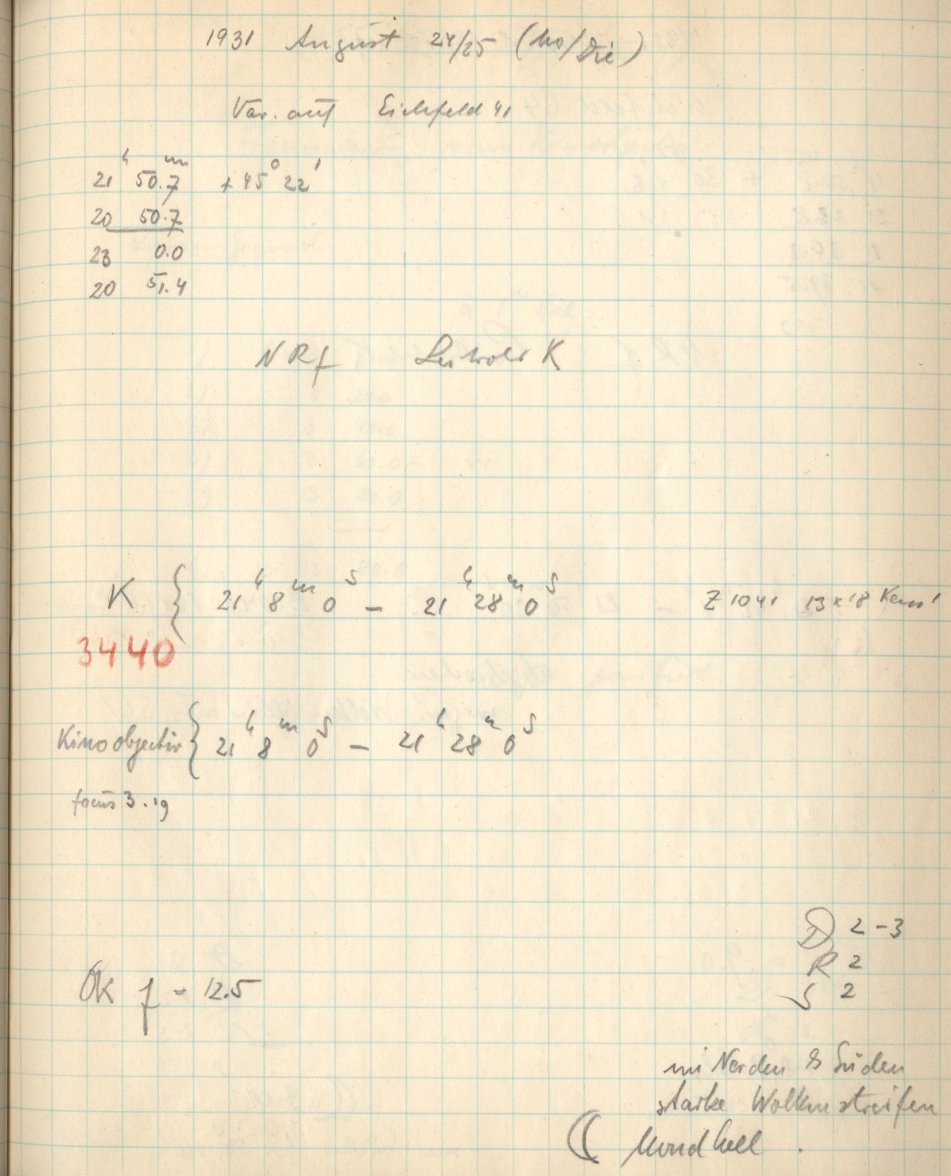 1931 August 24/25 (Mo/Die)
Var. auf Eichfeld 41
21ʰ 50.7ᵐ + 45° 22'
20 50.7
23 0.0
20 51.4
NRf K
K { 21ʰ 8ᵐ 0ˢ – 21ʰ 28ᵐ 0ˢ Z 1041 13 x 18
3440
Kinoobjectiv { 21ʰ 8ᵐ 0ˢ – 21ʰ 28ᵐ 0ˢ
focus 3.19
D 2-3
R 2
S 2
ÖK f - 12.5
im Norden & Süden
starke Wolkenstreifen
Mond hell .